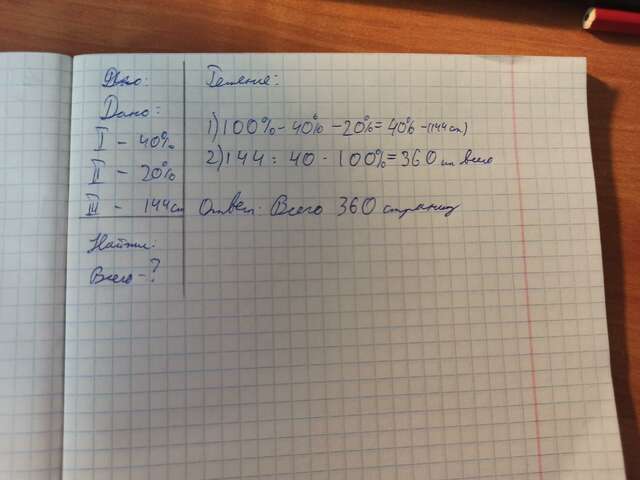 Дано:
I - 40%
II - 20%
III - 144 ст
Найти:
Всего - ?
Решение:
1) 100% - 40% - 20% = 40% - (144 ст.)
2) 144 : 40 · 100% = 360 всего
Ответ: Всего 360 страниц